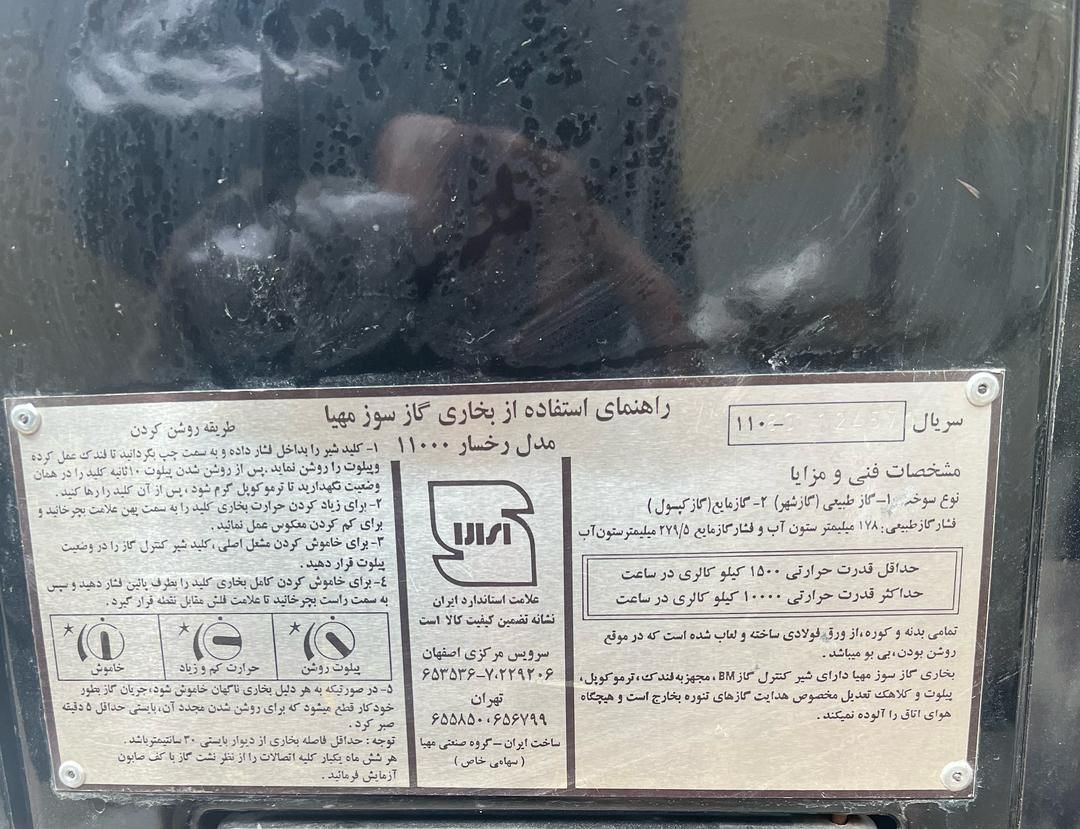 راهنمای استفاده از بخاری گاز سوز مهیا
مدل رخسار ۱۱۰۰۰
سریال
۱۱۰-
مشخصات فنی و مزایا
نوع سوخت ۱- گاز طبیعی (گازشهر) ۲- گازمایع(گازکپسول)
فشارگازطبیعی: ۱۷۸ میلیمتر ستون آب و فشارگازمایع ۲۷۹/۵ میلیمترستون‌آب
حداقل قدرت حرارتی ۱۵۰۰ کیلو کالری در ساعت
حداکثر قدرت حرارتی ۱۰۰۰۰ کیلو کالری در ساعت
تمامی بدنه و کوره،از ورق فولادی ساخته و لعاب شده است که در موقع
روشن بودن، بی بو میباشد.
بخاری گاز سوز مهیا دارای شیر کنترل گاز BM، مجهزبه‌فندک، ترموکوپل،
پیلوت و کلاهک تعدیل مخصوص هدایت گازهای تنوره بخارج است و هیچگاه
هوای اتاق را آلوده نمیکند.
علامت استاندارد ایران
نشانه تضمین کیفیت کالا است
سرویس مرکزی اصفهان
۶۵۳۵۳۶-۷۰۲۲۹۲۰۶
تهران
۶۵۵۸۵۰۰۶۵۶۷۹۹
ساخت ایران-گروه صنعتی مهیا
(سهامی خاص)
طریقه روشن کردن
۱- کلید شیر را بداخل فشار داده و به سمت چپ بگردانید تا فندک عمل کرده
وپیلوت را روشن نماید. پس از روشن شدن پیلوت ۱۰ثانیه کلید را در همان
وضعیت نگهدارید تا ترموکوپل گرم شود، پس از آن کلید را رها کنید.
۲- برای زیاد کردن حرارت بخاری کلید را به سمت پهن علامت بچرخانید و
برای کم کردن معکوس عمل نمائید.
۳- برای خاموش کردن مشعل اصلی، کلید شیر کنترل گاز را در وضعیت
پیلوت قرار دهید.
۴- برای خاموش کردن کامل بخاری کلید را بطرف پائین فشار دهید و سپس
به سمت راست بچرخانید تا علامت فلش مقابل نقطه قرار گیرد.
پیلوت روشن
حرارت کم و زیاد
خاموش
۵- در صورتیکه به هر دلیل بخاری ناگهان خاموش شود، جریان گاز بطور
خود کار قطع میشود که برای روشن شدن مجدد آن، بایستی حداقل ۵ دقیقه
صبر کرد.
توجه: حداقل فاصله بخاری از دیوار بایستی ۳۰ سانتیمترباشد.
هر شش ماه یکبار کلیه اتصالات را از نظر نشت گاز با کف صابون
آزمایش فرمائید.